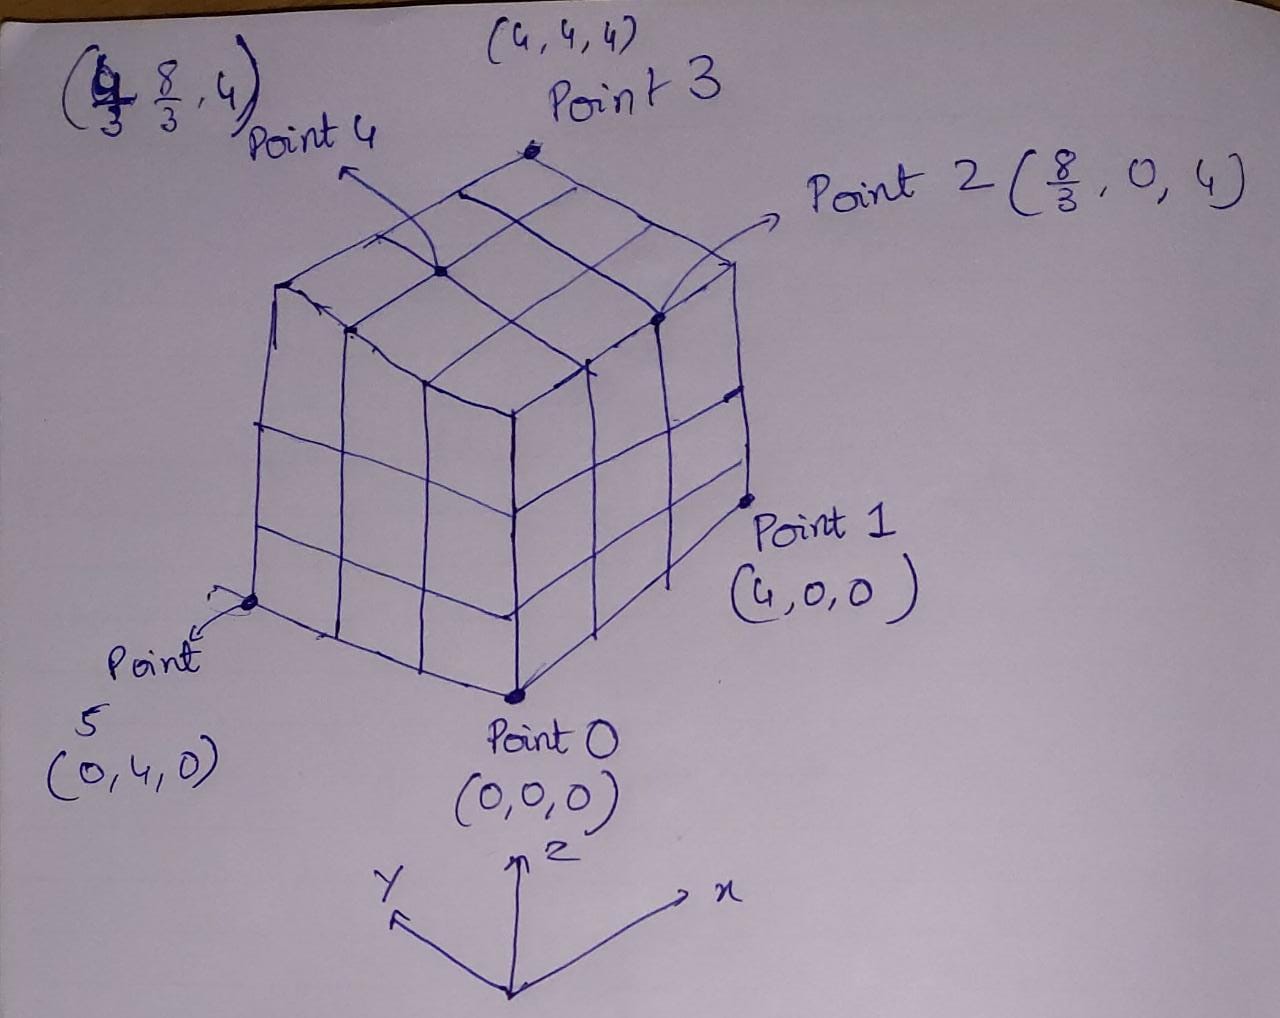 (4, 4, 4)
Point 3
(4/3 8/3, 4)
Point 4
Point 2 (8/3, 0, 4)
Point 1
(4,0,0)
Point
5
(0,4,0)
Point 0
(0,0,0)
Z
Y
x